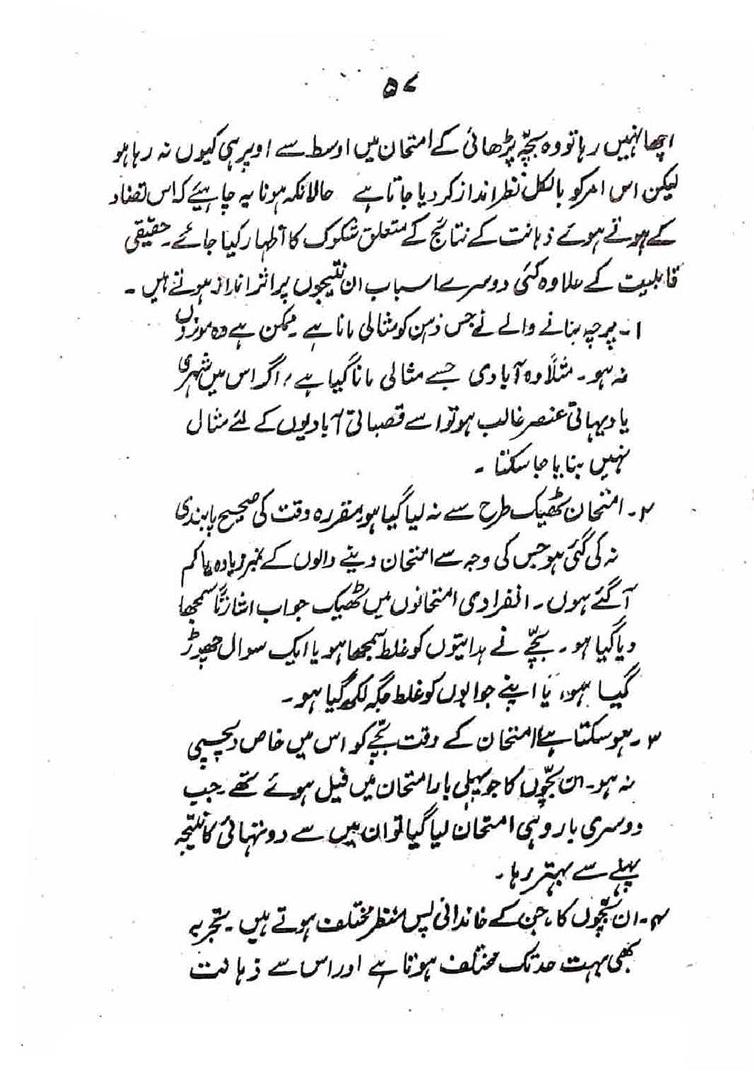 ۵۷
اچھا نہیں رہا تو وہ بچّہ پڑھائی کے امتحان میں اوسط سے اوپر ہی کیوں نہ رہا ہو
لیکن اس امر کو بالکل نظر انداز کر دیا جاتا ہے حالانکہ ہونا یہ چاہیئے کہ اس تضاد
کے ہوتے ہوئے ذہانت کے نتائج کے متعلق شکوک کا اظہار کیا جائے۔ حقیقی
قابلیت کے علاوہ کئی دوسرے اسباب ان نتیجوں پر اثر انداز ہوتے ہیں ۔
۱۔ پرچہ بنانے والے نے جس ذہن کو مثالی مانا ہے ممکن ہے وہ موزوں
نہ ہو۔ مثلاً وہ آبادی جسے مثالی مانا گیا ہے، اگر اس میں شہری
یا دیہاتی عنصر غالب ہو تو اسے قصباتی آبادیوں کے لئے مثال
نہیں بنایا جا سکتا ۔
۲۔ امتحان ٹھیک طرح سے نہ لیا گیا ہو، مقررہ وقت کی صحیح پابندی
نہ کی گئی ہو جس کی وجہ سے امتحان دینے والوں کے نمبر زیادہ یا کم
آ گئے ہوں۔ انفرادی امتحانوں میں ٹھیک جواب اشارتاً سمجھا
دیا گیا ہو۔ بچّے نے ہدایتوں کو غلط سمجھا ہو یا ایک سوال چھوڑ
گیا ہو، یا اپنے جوابوں کو غلط جگہ لکھ گیا ہو۔
۳۔ ہو سکتا ہے امتحان کے وقت بچّے کو اس میں خاص دلچسپی
نہ ہو۔ ان بچّوں کا جو پہلی بار امتحان میں فیل ہوئے تھے جب
دوسری بار وہی امتحان لیا گیا تو ان میں سے دو تہائی کا نتیجہ
پہلے سے بہتر رہا۔
۴۔ ان بچّوں کا، جن کے خاندانی پس منظر مختلف ہوتے ہیں۔ تجربہ
بھی بہت حد تک مختلف ہوتا ہے اور اس سے ذہانت